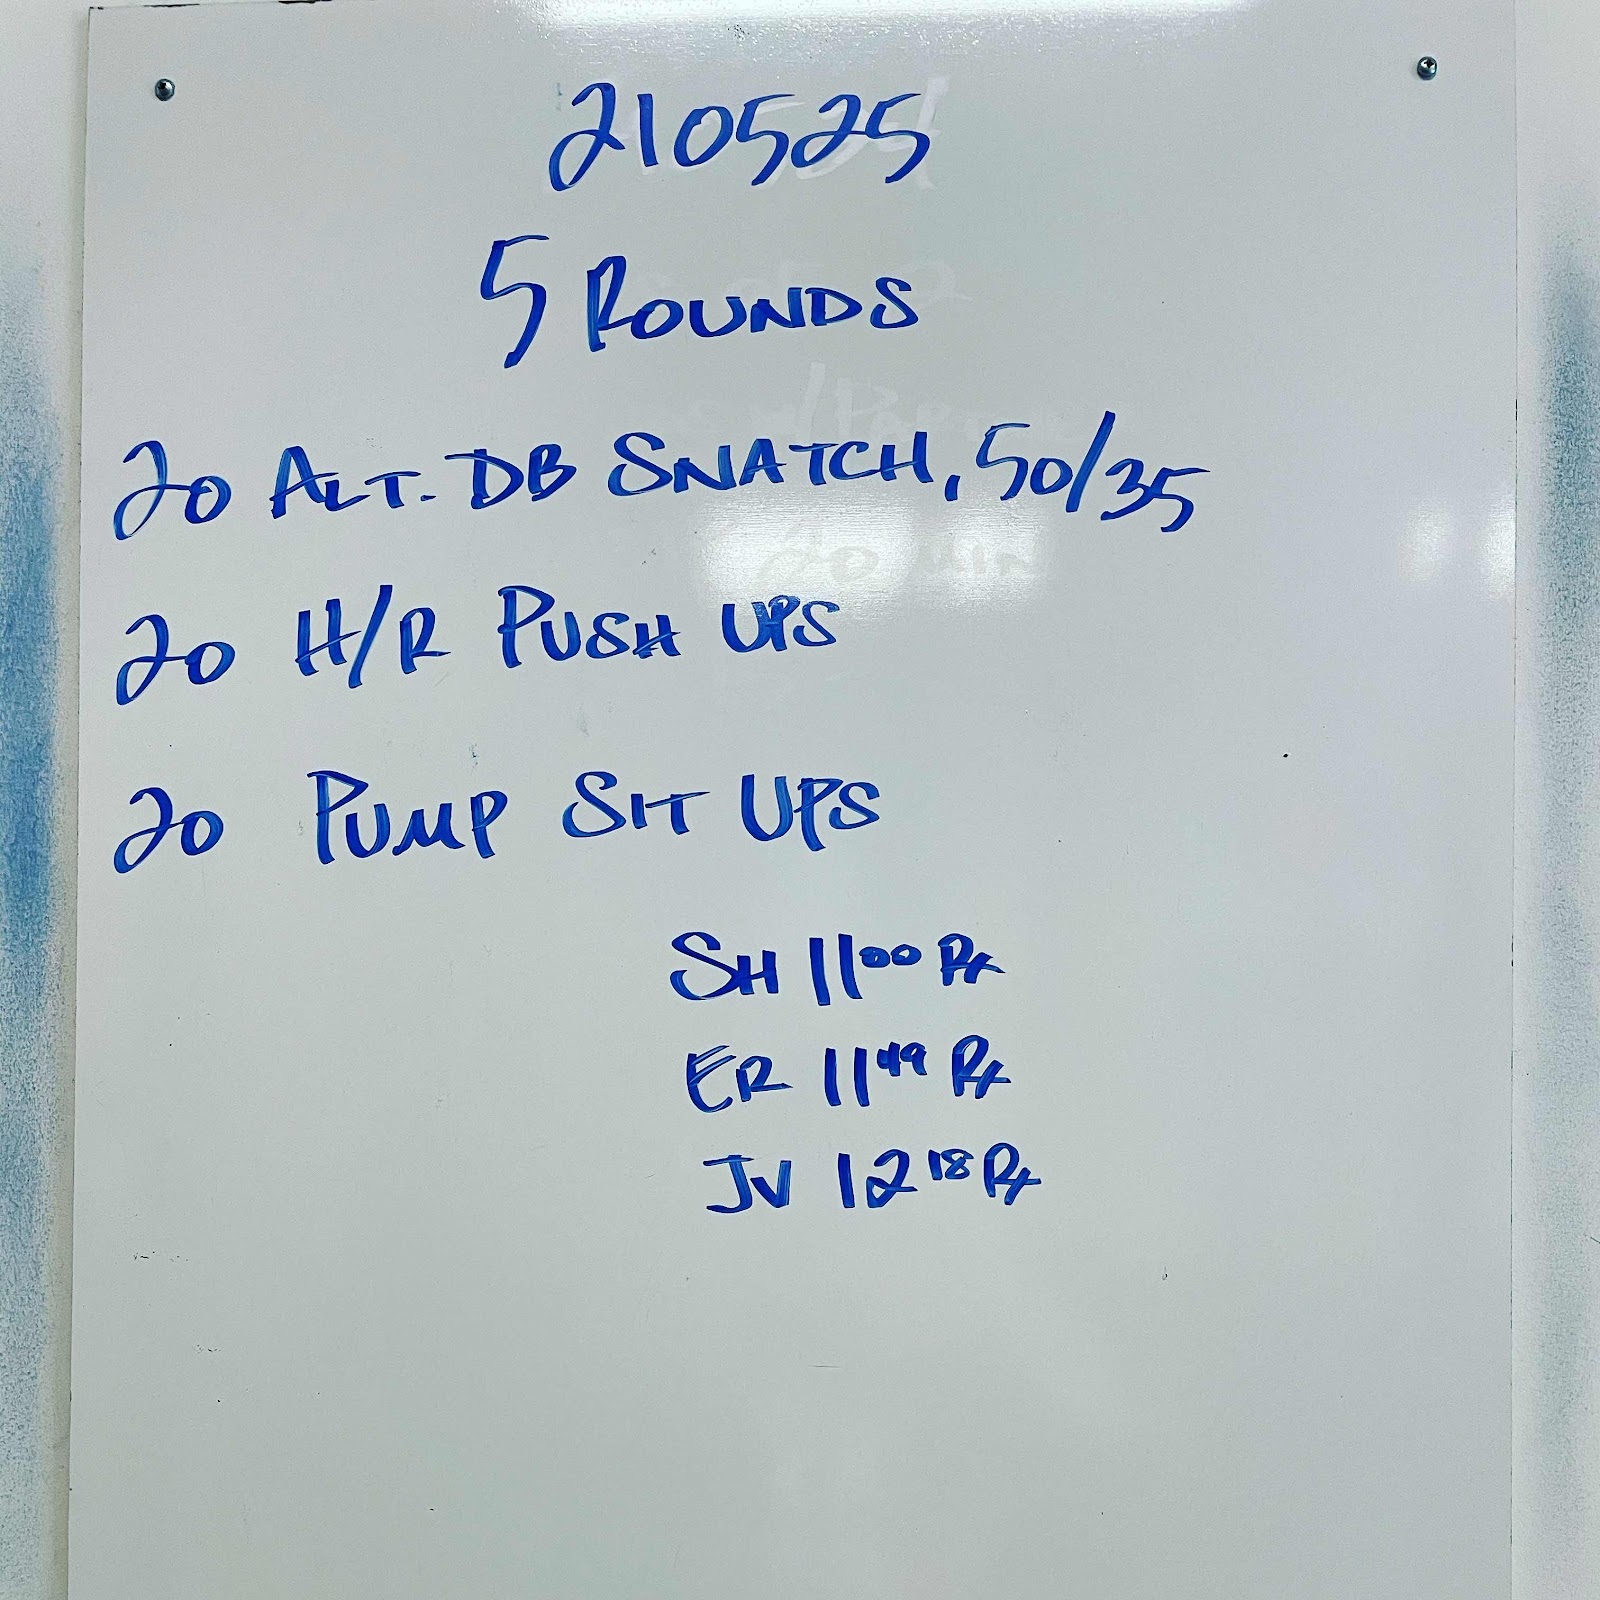 210525
5 ROUNDS
20 ALT. DB SNATCH, 50/35
20 H/R PUSH UPS
20 PUMP SIT UPS
SH 11 00 Rx
ER 11 49 Rx
JV 12 18 Rx